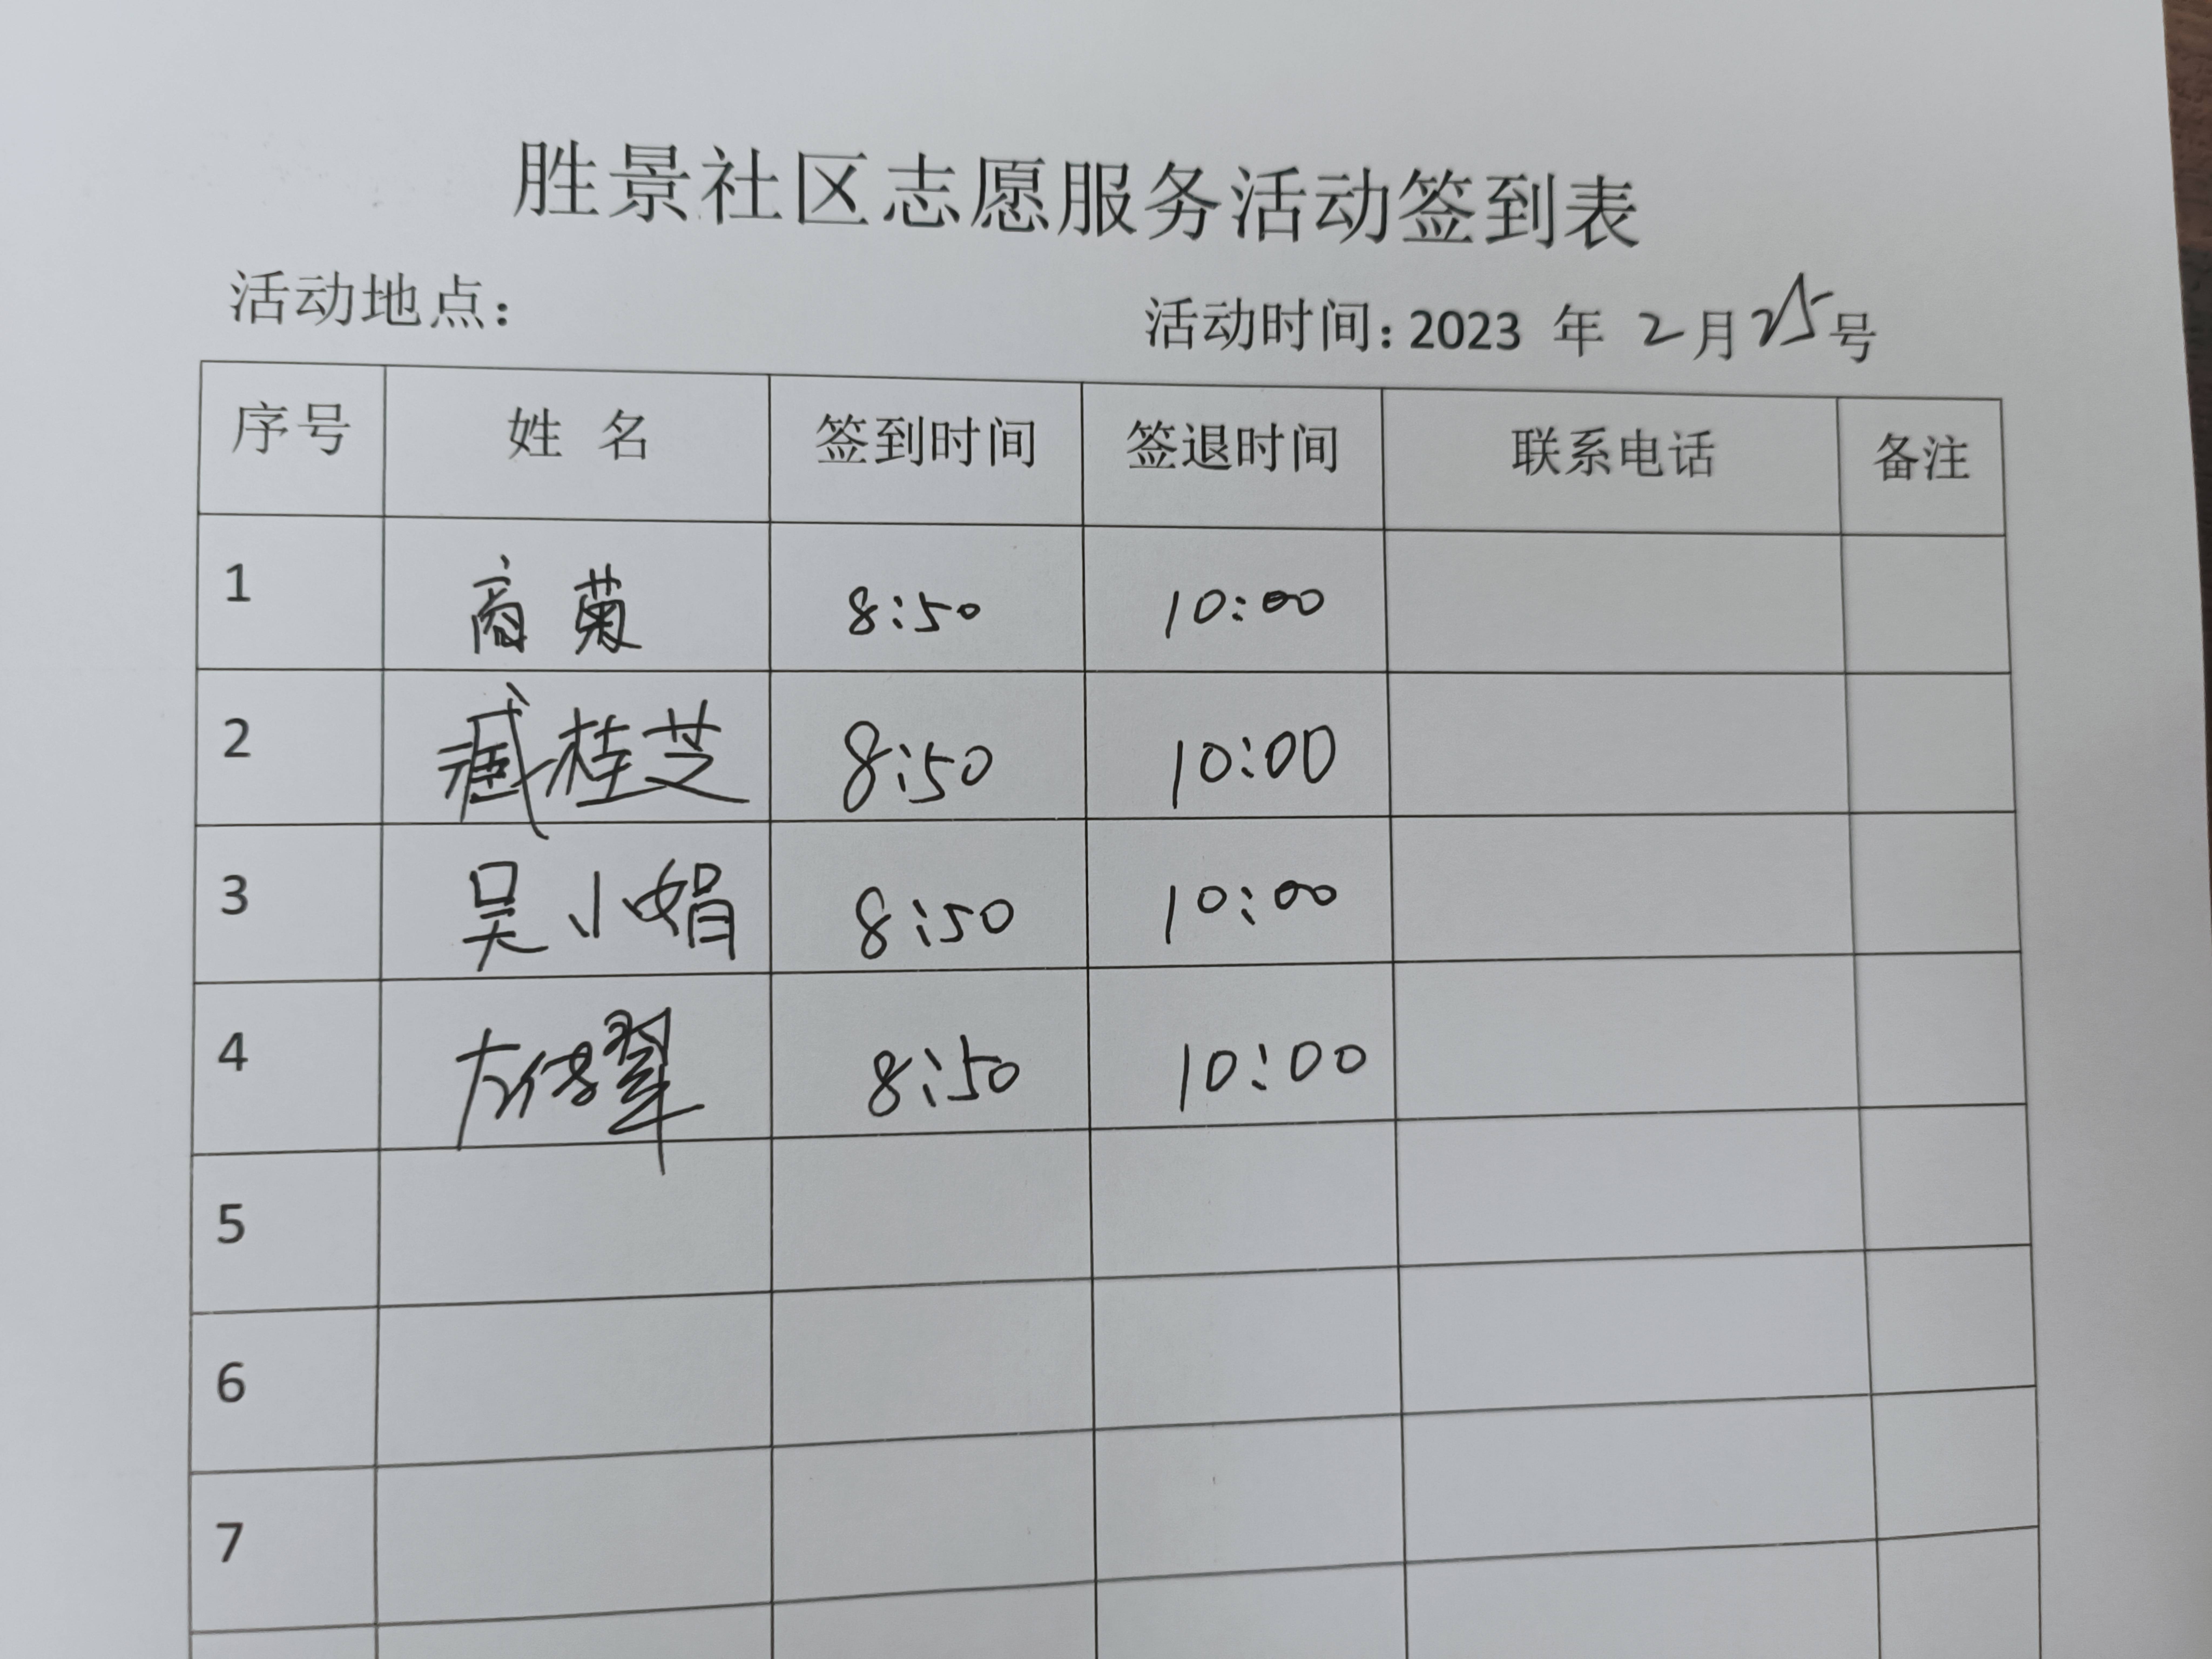 胜景社区志愿服务活动签到表
活动地点: 活动时间: 2023 年 2月25号
序号 姓 名 签到时间 签退时间 联系电话 备注
1 商菊 8:50 10:00
2 臧桂芝 8:50 10:00
3 吴小娟 8:50 10:00
4 8:50 10:00
5
6
7